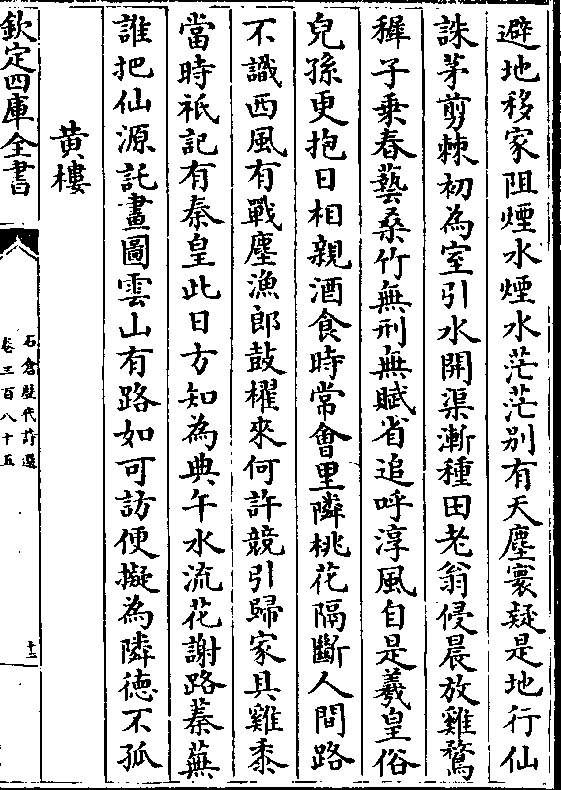 避地移家阻煙水煙水茫茫别有天塵寰疑是地行仙
誅茅剪棘初為室引水開渠漸種田老翁侵晨放雞鶩
穉子乗春藝桑竹無刑無賦省追呼淳風自是羲皇俗
兒孫更抱日相親酒食時常會里隣桃花隔斷人間路
不識西風有戰塵漁郎鼓櫂來何許競引歸家具雞黍
當時祇記有秦皇此日方知為典午水流花謝路蓁蕪
誰把仙源託畫圖雲山有路如可訪便擬為隣徳不孤
黄樓
欽定四庫全書
石倉歴代詩選
卷三百八十五
十二